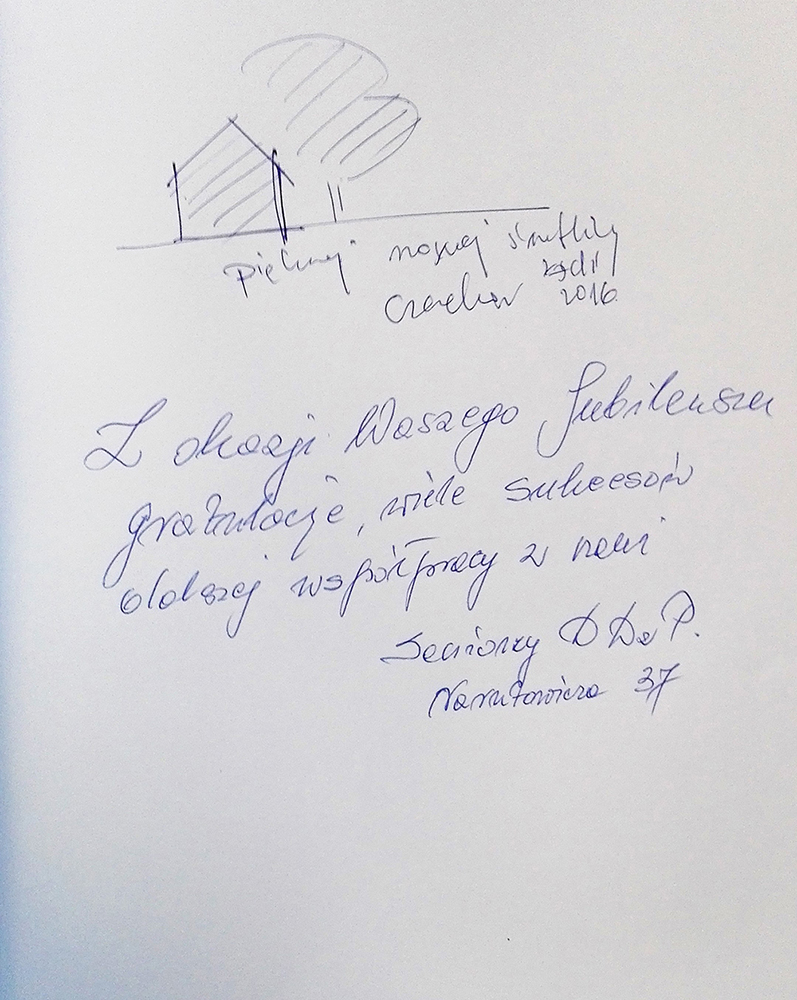 Pięknej naszej świetlicy
2016
Z okazji Waszego Jubileuszu
gratulacje, wiele sukcesów
dalszej współpracy z nami
Seniorzy DDzP.
Narutowicza 37